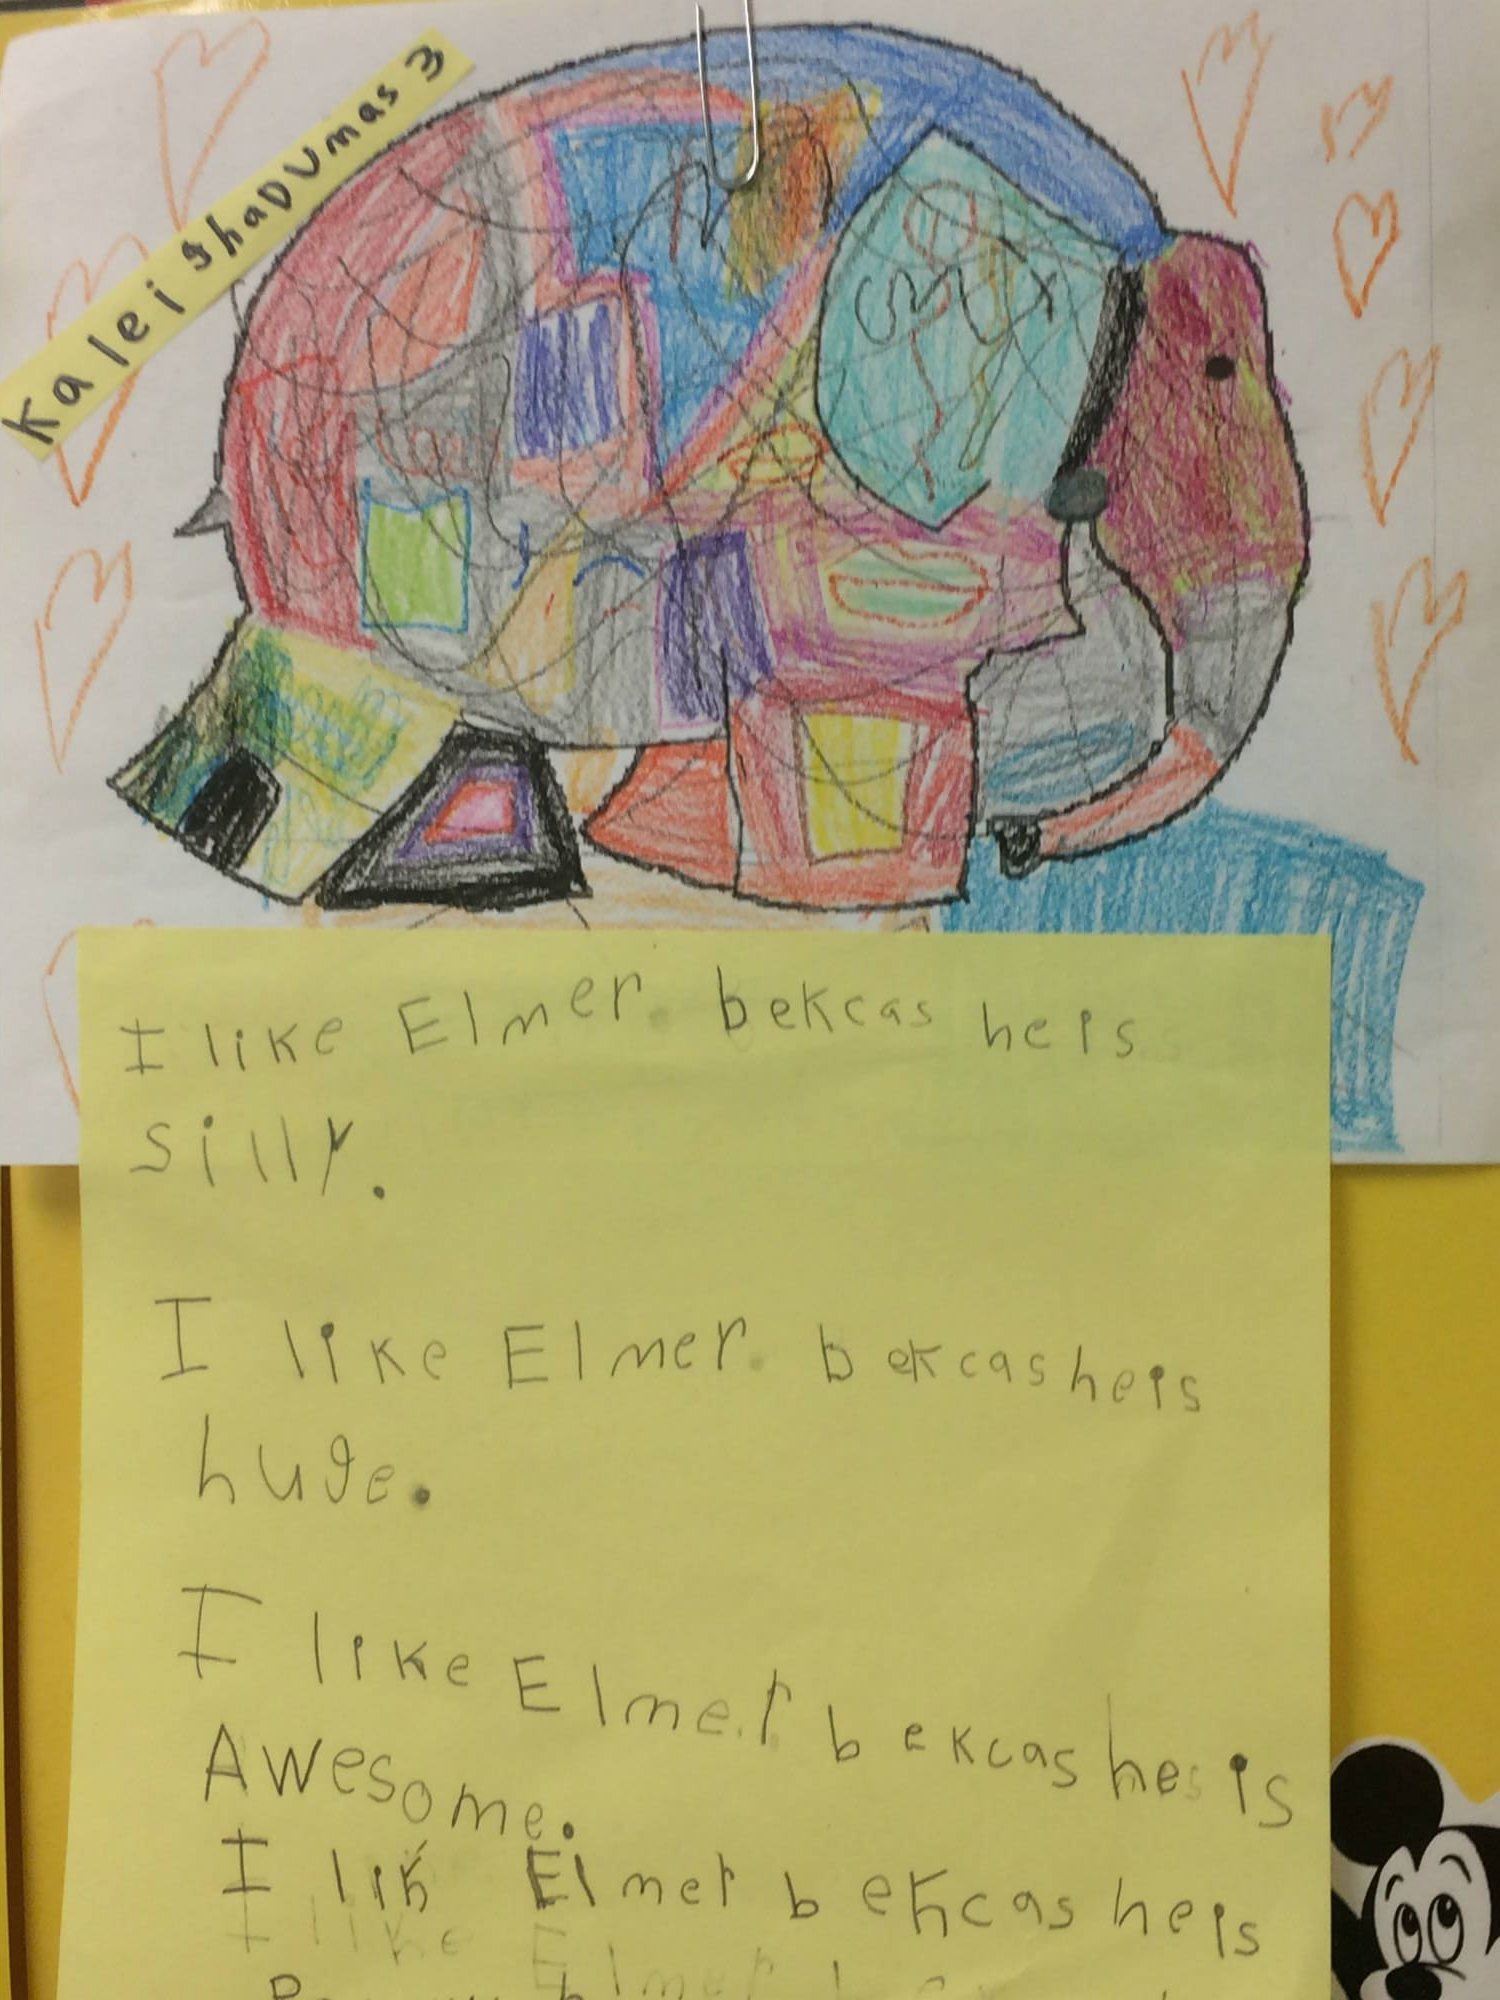 Kaleishadumas 3
I like Elmer. bekcas he is
silly.
I like Elmer. bekcas he is
huge.
I like Elmer bekcas he is
Awesome.
I lik Elmer bekcas he is